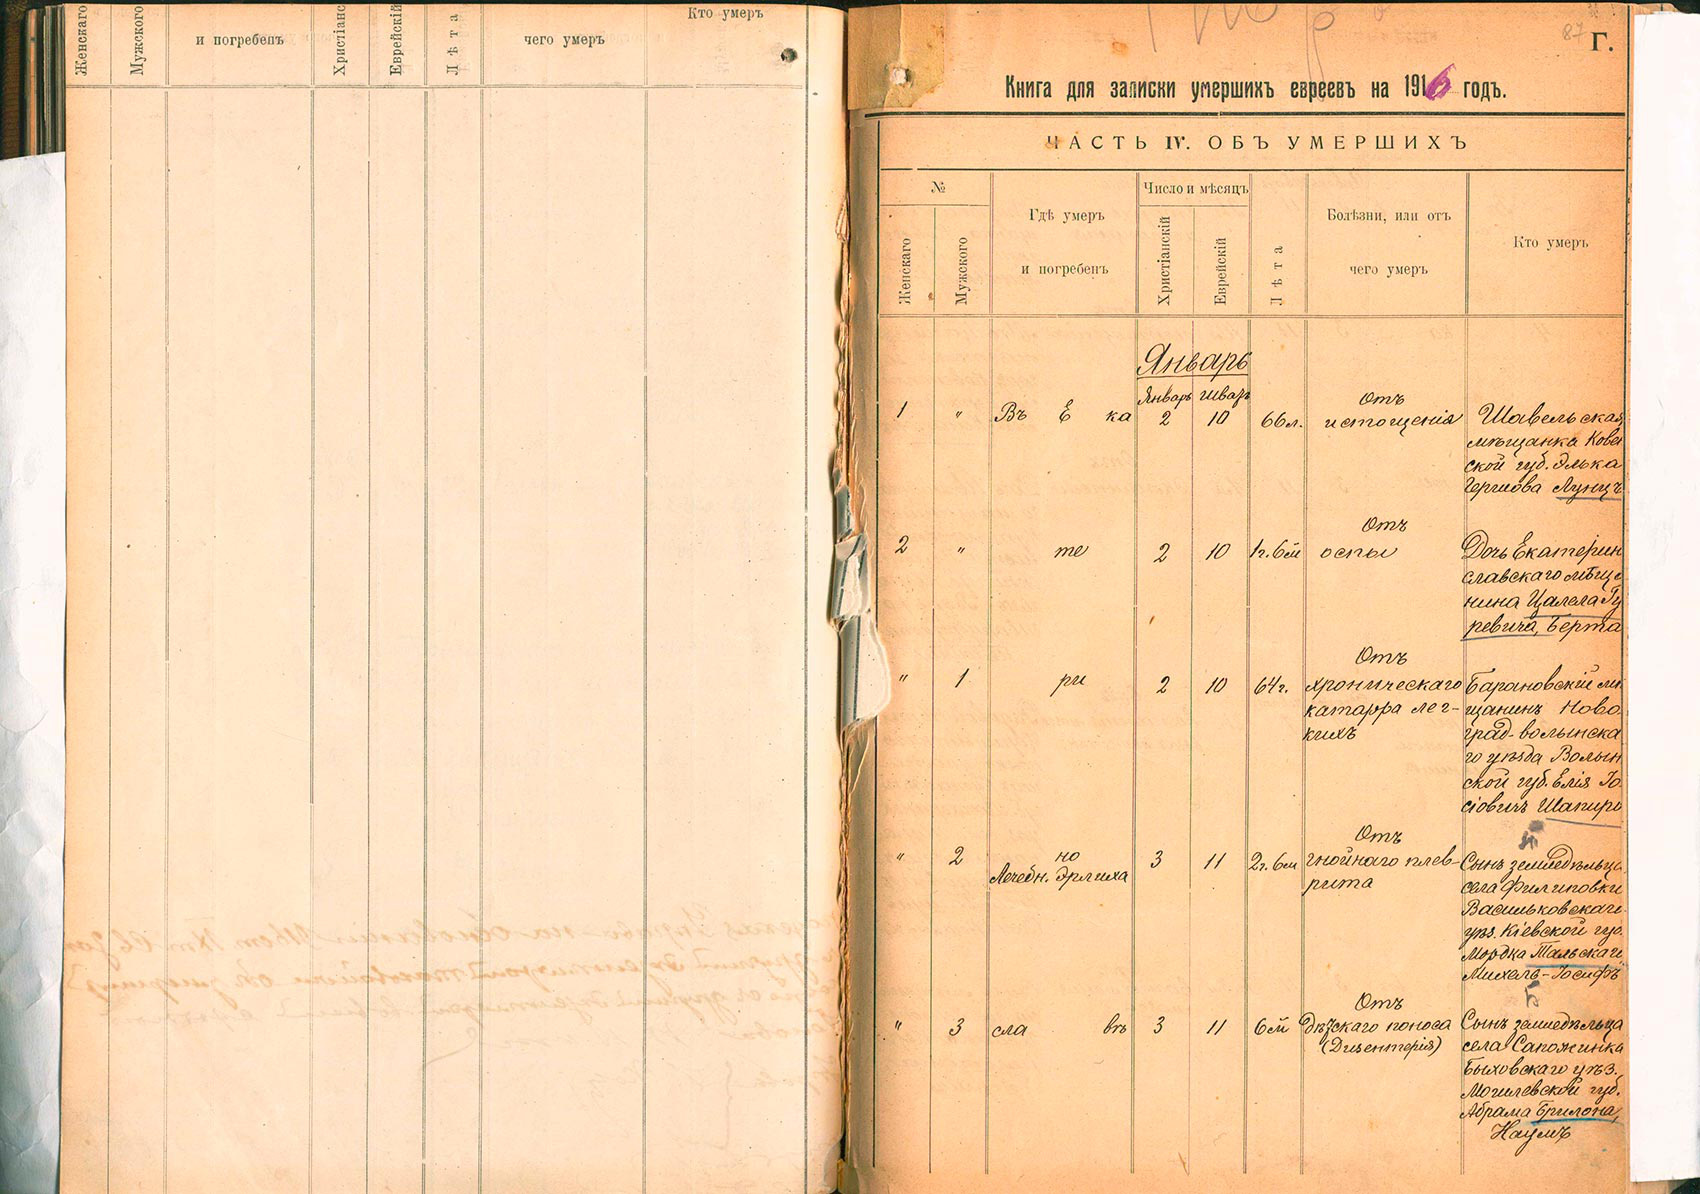 Женскаго
Мужского
и погребенъ
Христіанс
Еврейскій
Лѣта
чего умеръ
Кто умеръ
87
Г.
Книга для записки умершихъ евреевъ на 1916 годъ.
ЧАСТЬ IV. ОБЪ УМЕРШИХЪ
№
Женскаго
Мужского
Гдѣ умеръ
и погребенъ
Число и мѣсяцъ
Христіанскій
Еврейскій
Лѣта
Болѣзни, или отъ
чего умеръ
Кто умеръ
Январь
Январь Шватъ
1 " Въ Е ка 2 10 66 л.
Отъ
истощенія
Шавельская
мѣщанка Ковен
ской губ. Элька
Гершова Лунцъ
2 " те 2 10 1 г. 6 м
Отъ
оспы
Дочь Екатерин
славскаго мѣща
нина Цалела Гу
ревича, Берта
" 1 ри 2 10 64 г.
Отъ
хроническаго
катарра лег-
кихъ
Барановскій мѣ
щанинъ Ново
град-волынска
го уѣзда Волын
ской губ. Елія Іо
сіовичъ Шапиро
" 2 но
Лечебн. Эрлиха
3 11 2 г. 6 м
Отъ
гнойнаго плев-
рита
Сынъ земледѣльца
села Филиповки
Васильковскаго
уѣз. Кіевской губ.
Мордка Тальскаго
Михель-Іосифъ
" 3 сла вѣ 3 11 6 м
Отъ
дѣтскаго поноса
(Дизентерія)
Сынъ земледѣльца
села Сапожинка
Быховскаго уѣз.
Могилевской губ.
Абрама Брилона,
Наумъ